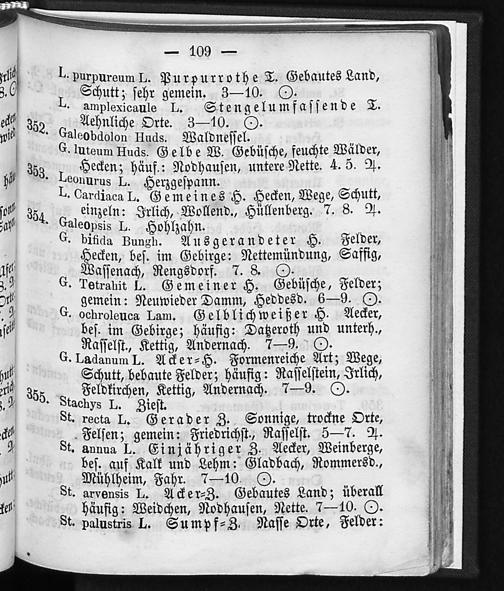 — 109 —
L. purpureum L. Purpurrothe T. Gebautes Land,
Schutt; sehr gemein. 3—10. ⊙.
L. amplexicaule L. Stengelumfassende T.
Aehnliche Orte. 3—10. ⊙.
352. Galeobdolon Huds. Waldnessel.
G. luteum Huds. Gelbe W. Gebüsche, feuchte Wälder,
Hecken; häuf.: Nodhausen, untere Nette. 4. 5. ♃.
353. Leonurus L. Herzgespann.
L. Cardiaca L. Gemeines H. Hecken, Wege, Schutt,
einzeln: Irlich, Wollend., Hüllenberg. 7. 8. ♃.
354. Galeopsis L. Hohlzahn.
G. bifida Bungh. Ausgerandeter H. Felder,
Hecken, bes. im Gebirge: Nettemündung, Saffig,
Wassenach, Rengsdorf. 7. 8. ⊙.
G. Tetrahit L. Gemeiner H. Gebüsche, Felder;
gemein: Neuwieder Damm, Heddesd. 6—9. ⊙.
G. ochroleuca Lam. Gelblichweißer H. Aecker,
bes. im Gebirge; häufig: Datzeroth und unterh.,
Rasselst., Kettig, Andernach. 7—9. ⊙.
G. Ladanum L. Acker=H. Formenreiche Art; Wege,
Schutt, bebaute Felder; häufig: Rasselstein, Irlich,
Feldkirchen, Kettig, Andernach. 7—9. ⊙.
355. Stachys L. Ziest.
St. recta L. Gerader Z. Sonnige, trockne Orte,
Felsen; gemein: Friedrichst., Rasselst. 5—7. ♃.
St. annua L. Einjähriger Z. Aecker, Weinberge,
bes. auf Kalk und Lehm: Gladbach, Rommersd.,
Mühlheim, Fahr. 7—10. ⊙.
St. arvensis L. Acker=Z. Gebautes Land; überall
häufig: Weidchen, Nodhausen, Nette. 7—10. ⊙.
St. palustris L. Sumpf=Z. Nasse Orte, Felder: